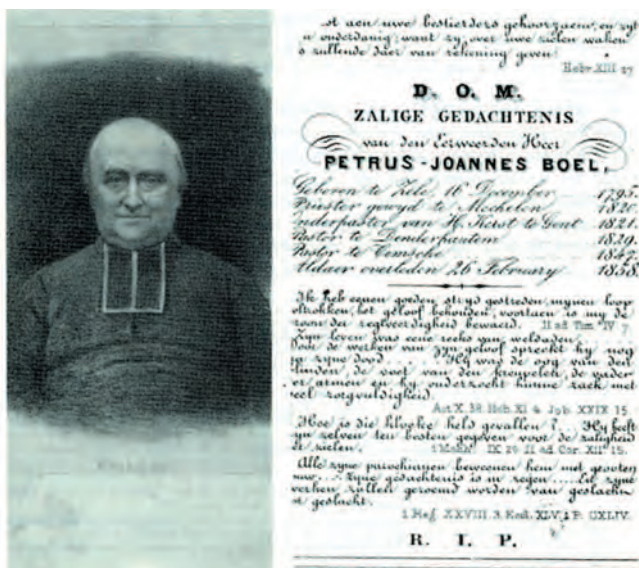 st aen uwe bestierders gehoorzaem, en zyt
n onderdanig; want zy over uwe zielen waken
s zullende daer van rekening geven
Hebr. XIII 17
D. O. M.
ZALIGE GEDACHTENIS
van den Eerweerden Heer
PETRUS-JOANNES BOEL,
Geboren te Zele 16 December 1795.
Priester gewyd te Mechelen 1820.
Onderpastor van H. Kerst te Gent 1821.
Pastor te Denderhautem 1829.
Pastor te Temsche 1847.
Aldaer overleden 26 February 1858.
Ik heb eenen goeden stryd gestreden, mynen loop
oltrokken, het geloof behouden; voortaen is my de
roon der regtveerdigheid bewaerd. II ad Tim. IV 7.
Zyn leven was eene reeks van weldaden
Door de werken van zyn geloof spreekt hy nog
na zyne dood.... Hy was de oog van den
linden, de voet van den kreupelen, de vader
er armen en hy onderzocht hunne zaek met
eel zorgvuldigheid.
Act X. 38. Heb. XI 4. Job. XXIX 15.
Hoe is die kloeke held gevallen?... Hy heeft
zyn zelven ten besten gegeven voor de zaligheid
er zielen. 1 Mach. IX 21. II ad Cor. XII 15.
Alle zyne parochianen beweenen hem met grooten
rouw... Zyne gedachtenis is in zegen.... En zyne
werken zullen geroemd worden van geslacht
ot geslacht.
XXVIII. 3. XLV. 1 P. CXLIV.
R. I. P.